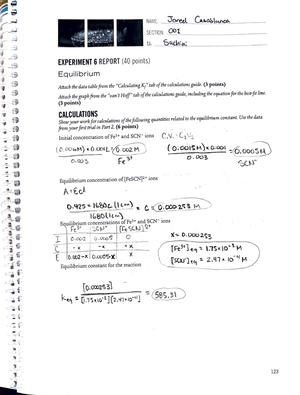 NAME: Jared Casablanca
SECTION: 001
TA: Sachini
EXPERIMENT 6 REPORT (40 points)
Equilibrium
Attach the data table from the "Calculating Kf" tab of the calculations guide. (3 points)
Attach the graph from the "van't Hoff" tab of the calculations guide, including the equation for the best fit line. (3 points)
CALCULATIONS
Show your work for calculations of the following quantities related to the equilibrium constant. Use the data from your first trial in Part 2. (6 points)
Initial concentration of Fe³⁺ and SCN⁻ ions C₁V₁ = C₂V₂
0.003 = 0.002M Fe³⁺
(0.0015M)×0.001 / 0.003 = 0.0005M SCN⁻
Equilibrium concentration of [FeSCN]²⁺ ions
A = εcl
0.425 = 1680c (1cm) / 1680(1cm) = c = 0.000253 M
Equilibrium concentrations of Fe³⁺ and SCN⁻ ions
Fe³⁺ SCN⁻ [FeSCN]²⁺
I 0.002 0.0005 0
C -x -x +x
E 0.002-x 0.0005-x x
x = 0.000253
[Fe³⁺]eq = 1.75×10⁻³ M
[SCN⁻]eq = 2.47×10⁻⁴ M
Equilibrium constant for the reaction
Keq = [0.000253] / [1.75×10⁻³][2.47×10⁻⁴] = 585.31
123